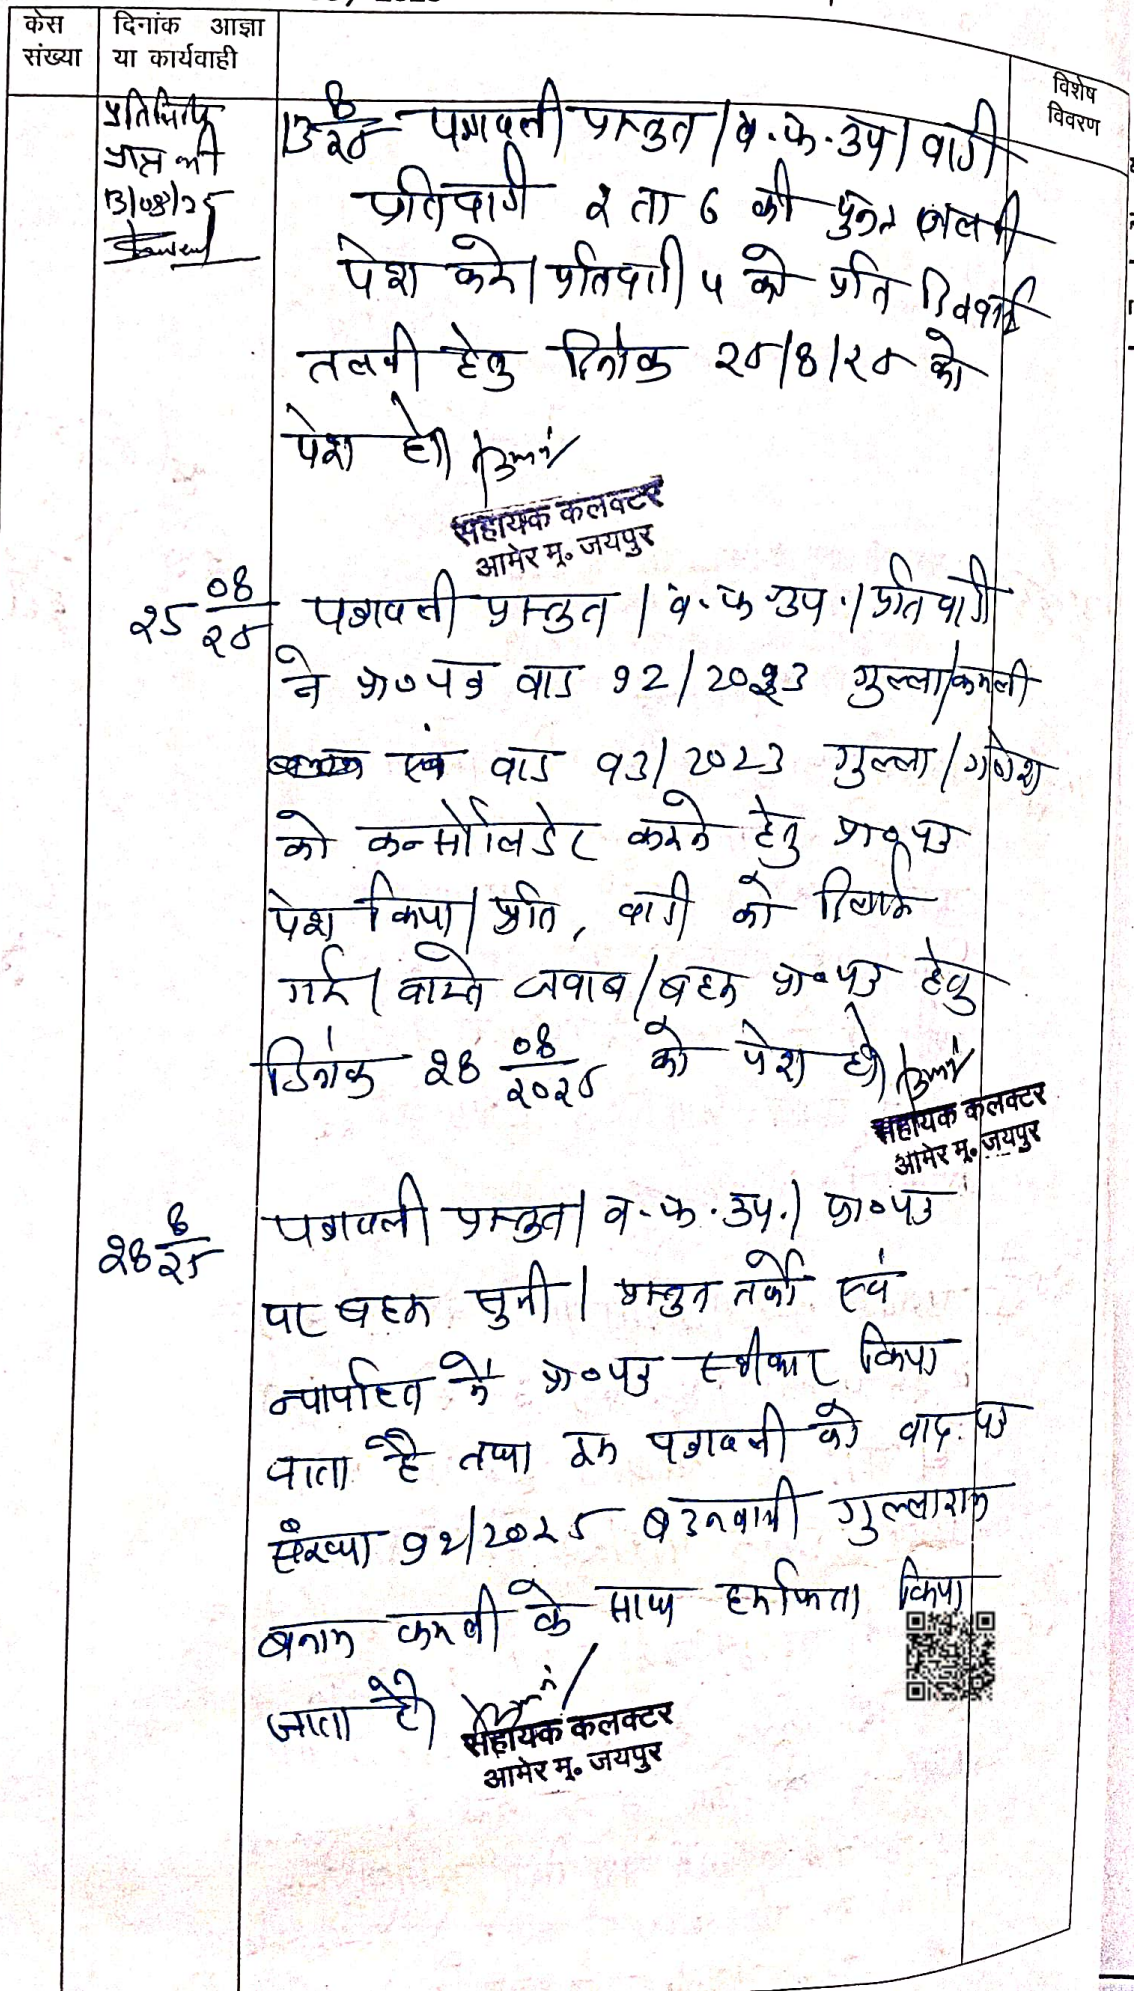 केस संख्या
दिनांक आज्ञा या कार्यवाही
विशेष विवरण
प्रतिलिपि
प्राप्त की
13/08/25
13 8/25 पत्रावली प्रस्तुत। व.फ.उप। वादी
प्रतिवादी 2 ता 6 की पुनः तलबी
पेश करे। प्रतिवादी 5 को प्रति दिलवाई
तलबी हेतु दिनांक 25/8/25 को
पेश हो।
सहायक कलक्टर
आमेर मु. जयपुर
25 08/25 पत्रावली प्रस्तुत। व.फ.उप.। प्रतिवादी
ने प्रा०पत्र वाद 92/2023 गुल्ला/कमली
एवं वाद 93/2023 गुल्ला/गणेश
को कन्सोलिडेट करने हेतु प्रा०पत्र
पेश किया। प्रति, वादी को दिलाई
गई। वास्ते जवाब/बहस प्रा०पत्र हेतु
दिनांक 28 08/2025 को पेश हो।
सहायक कलक्टर
आमेर मु. जयपुर
28 8/25 पत्रावली प्रस्तुत। व.फ.उप.। प्रा०पत्र
पर बहस सुनी। प्रस्तुत तर्को एवं
न्यायहित में प्रा०पत्र स्वीकार किया
जाता है तथा इस पत्रावली को वाद पत्र
संख्या 92/2025 बउनवानी गुल्लाराम
बनाम कमली के साथ हमफिता किया
जाता है।
सहायक कलक्टर
आमेर मु. जयपुर